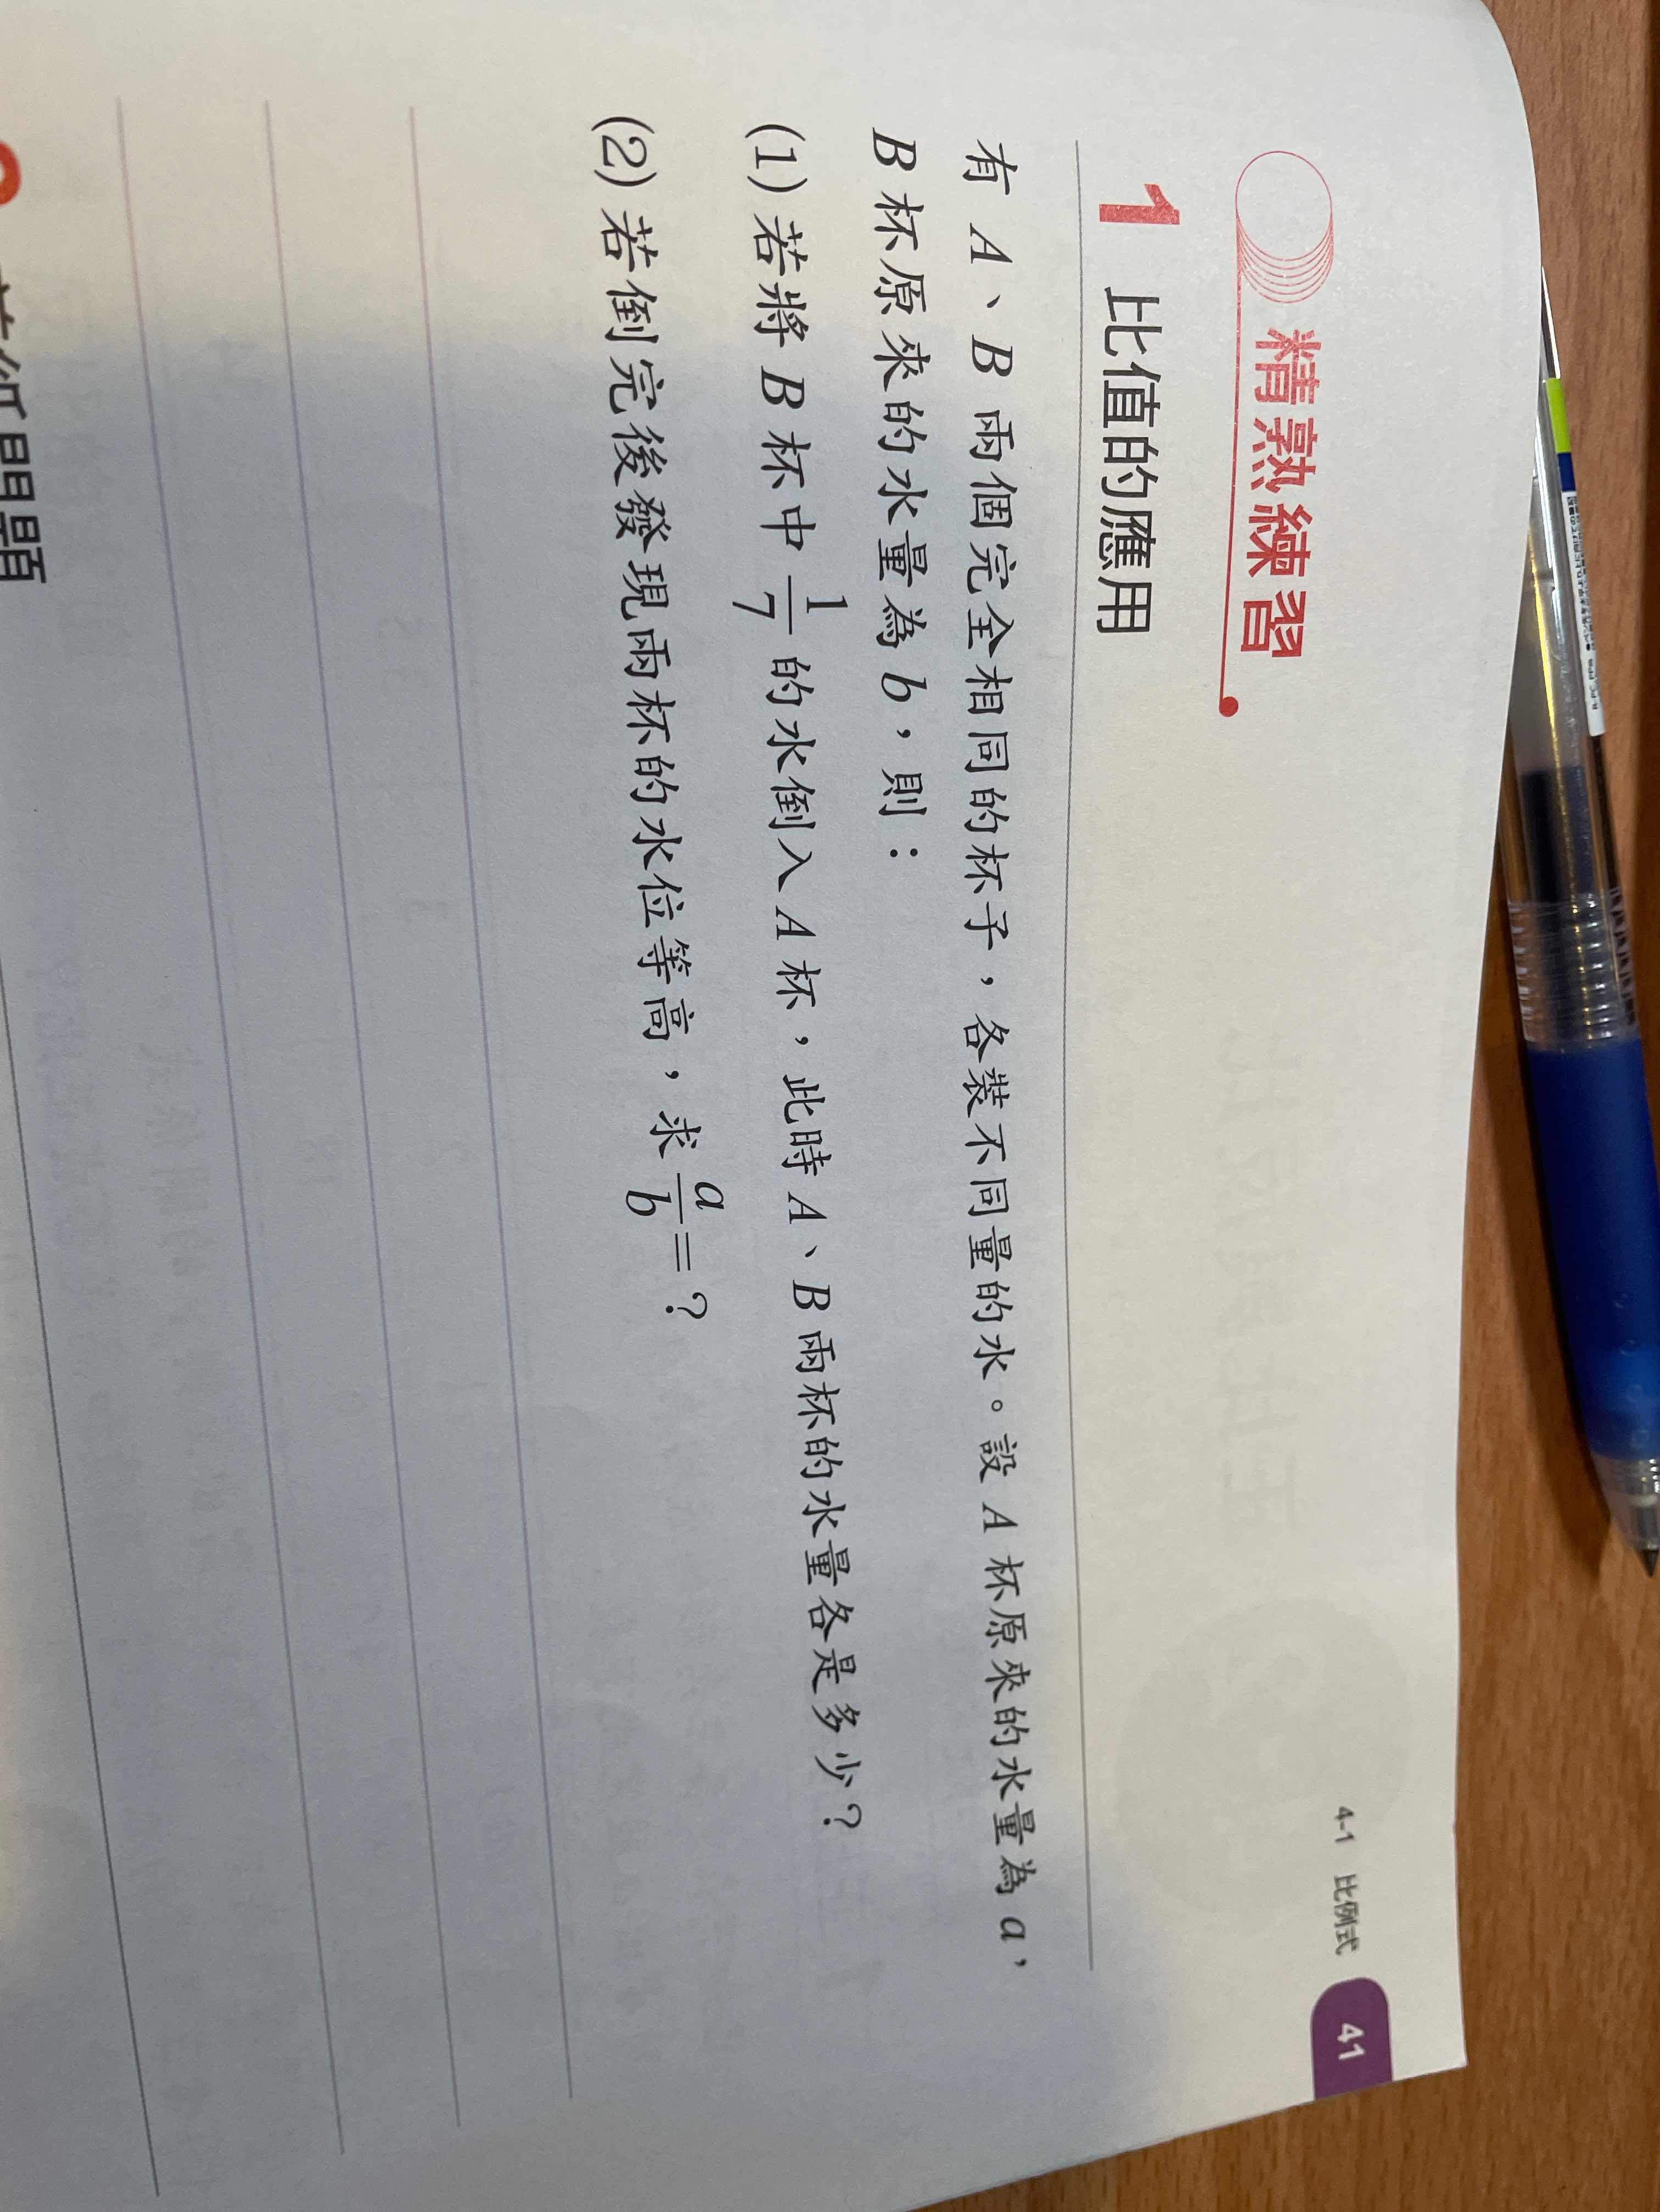 4-1 比例式 41
精熟練習
1 比值的應用
有 A、B 兩個完全相同的杯子，各裝不同量的水。設 A 杯原來的水量為 a，
B 杯原來的水量為 b，則：
(1) 若將 B 杯中 1/7 的水倒入 A 杯，此時 A、B 兩杯的水量各是多少？
(2) 若倒完後發現兩杯的水位等高，求 a/b = ？
問題